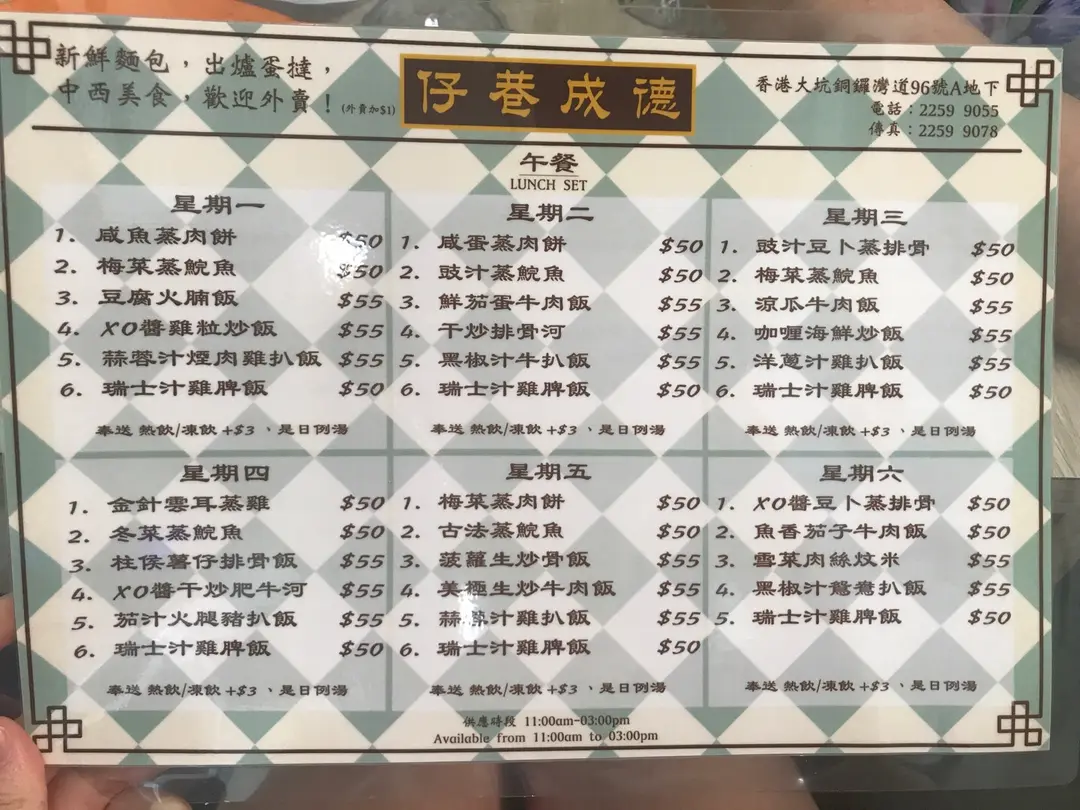 新鮮麵包，出爐蛋撻，
中西美食，歡迎外賣！(外賣加$1)
仔巷成德
香港大坑銅鑼灣道96號A地下
電話：2259 9055
傳真：2259 9078
午餐
LUNCH SET
星期一
1. 咸魚蒸肉餅 $50
2. 梅菜蒸鯇魚 $50
3. 豆腐火腩飯 $55
4. XO醬雞粒炒飯 $55
5. 蒜蓉汁煙肉雞扒飯 $55
6. 瑞士汁雞脾飯 $50
奉送 熱飲/凍飲+$3、是日例湯
星期二
1. 咸蛋蒸肉餅 $50
2. 豉汁蒸鯇魚 $50
3. 鮮茄蛋牛肉飯 $55
4. 干炒排骨河 $55
5. 黑椒汁牛扒飯 $55
6. 瑞士汁雞脾飯 $50
奉送 熱飲/凍飲+$3、是日例湯
星期三
1. 豉汁豆卜蒸排骨 $50
2. 梅菜蒸鯇魚 $50
3. 涼瓜牛肉飯 $55
4. 咖喱海鮮炒飯 $55
5. 洋蔥汁雞扒飯 $55
6. 瑞士汁雞脾飯 $50
奉送 熱飲/凍飲+$3、是日例湯
星期四
1. 金針雲耳蒸雞 $50
2. 冬菜蒸鯇魚 $50
3. 柱侯薯仔排骨飯 $55
4. XO醬干炒肥牛河 $55
5. 茄汁火腿豬扒飯 $55
6. 瑞士汁雞脾飯 $50
奉送 熱飲/凍飲+$3、是日例湯
星期五
1. 梅菜蒸肉餅 $50
2. 古法蒸鯇魚 $50
3. 菠蘿生炒骨飯 $55
4. 美極生炒牛肉飯 $55
5. 蒜蓉汁雞扒飯 $55
6. 瑞士汁雞脾飯 $50
奉送 熱飲/凍飲+$3、是日例湯
星期六
1. XO醬豆卜蒸排骨 $50
2. 魚香茄子牛肉飯 $50
3. 雪菜肉絲炆米 $55
4. 黑椒汁鴛鴦扒飯 $55
5. 瑞士汁雞脾飯 $50
奉送 熱飲/凍飲+$3、是日例湯
供應時段 11:00am-03:00pm
Available from 11:00am to 03:00pm